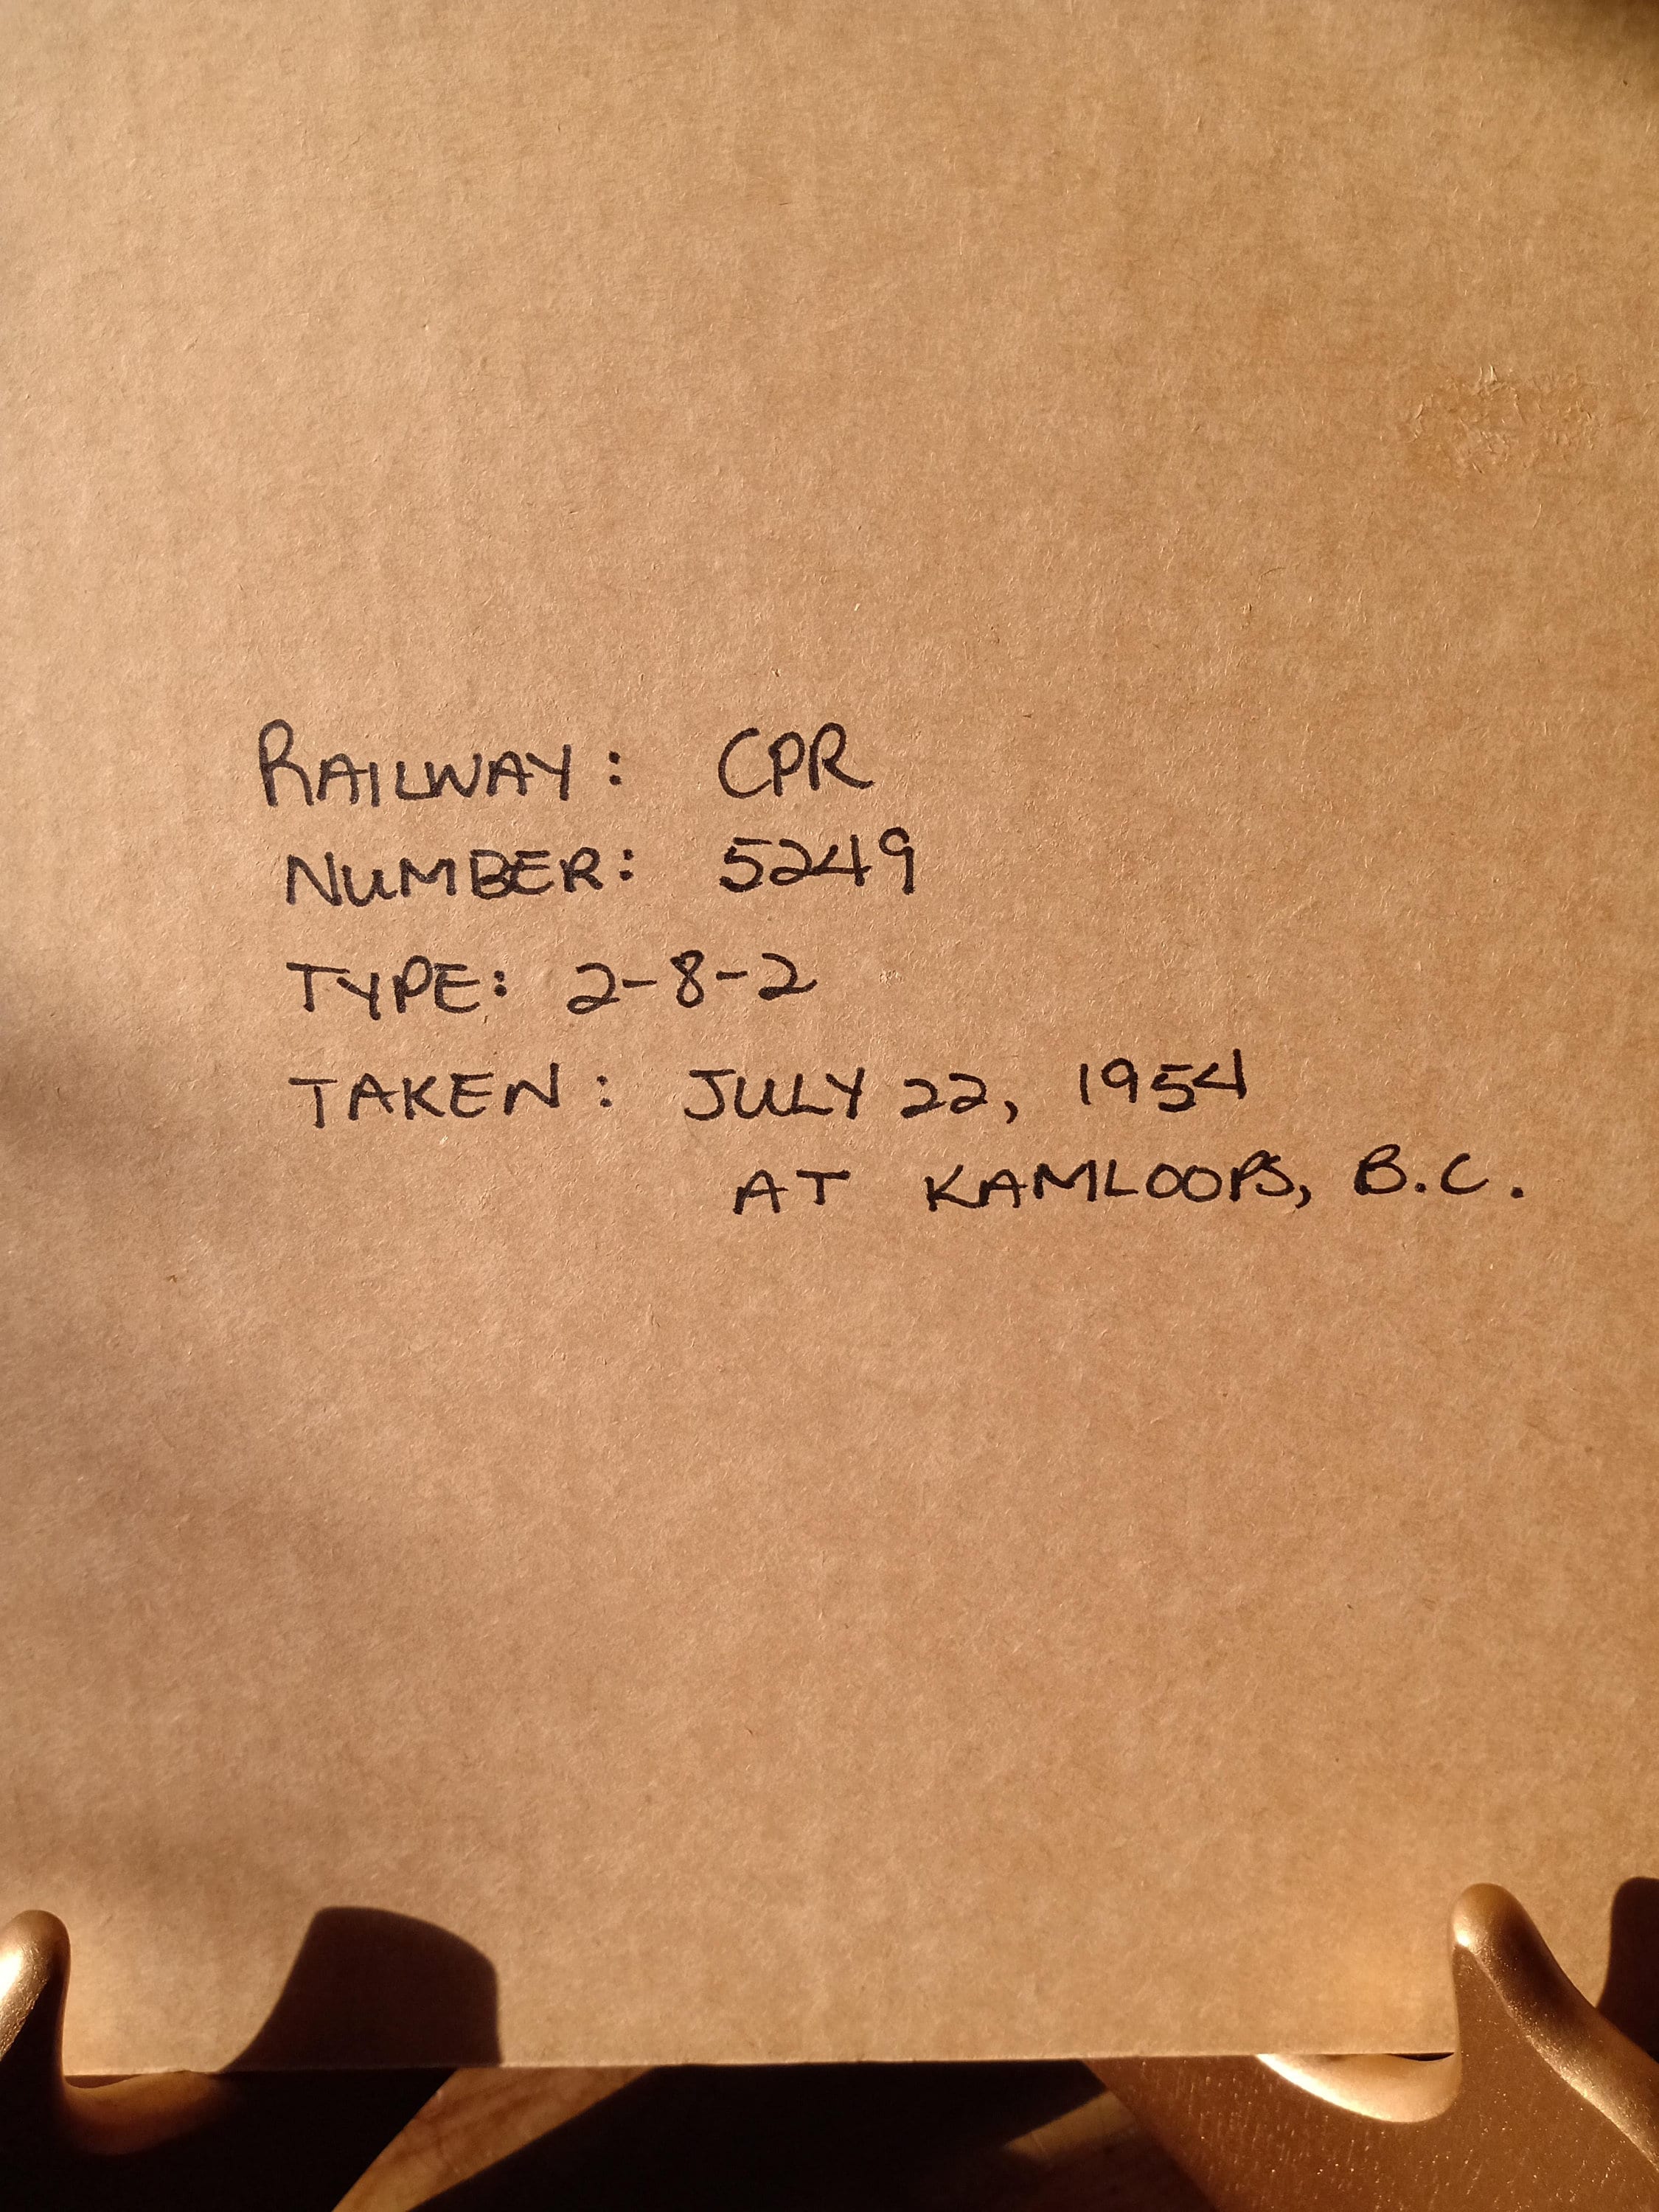 RAILWAY: CPR
NUMBER: 5249
TYPE: 2-8-2
TAKEN: JULY 22, 1954
AT KAMLOOPS, B.C.